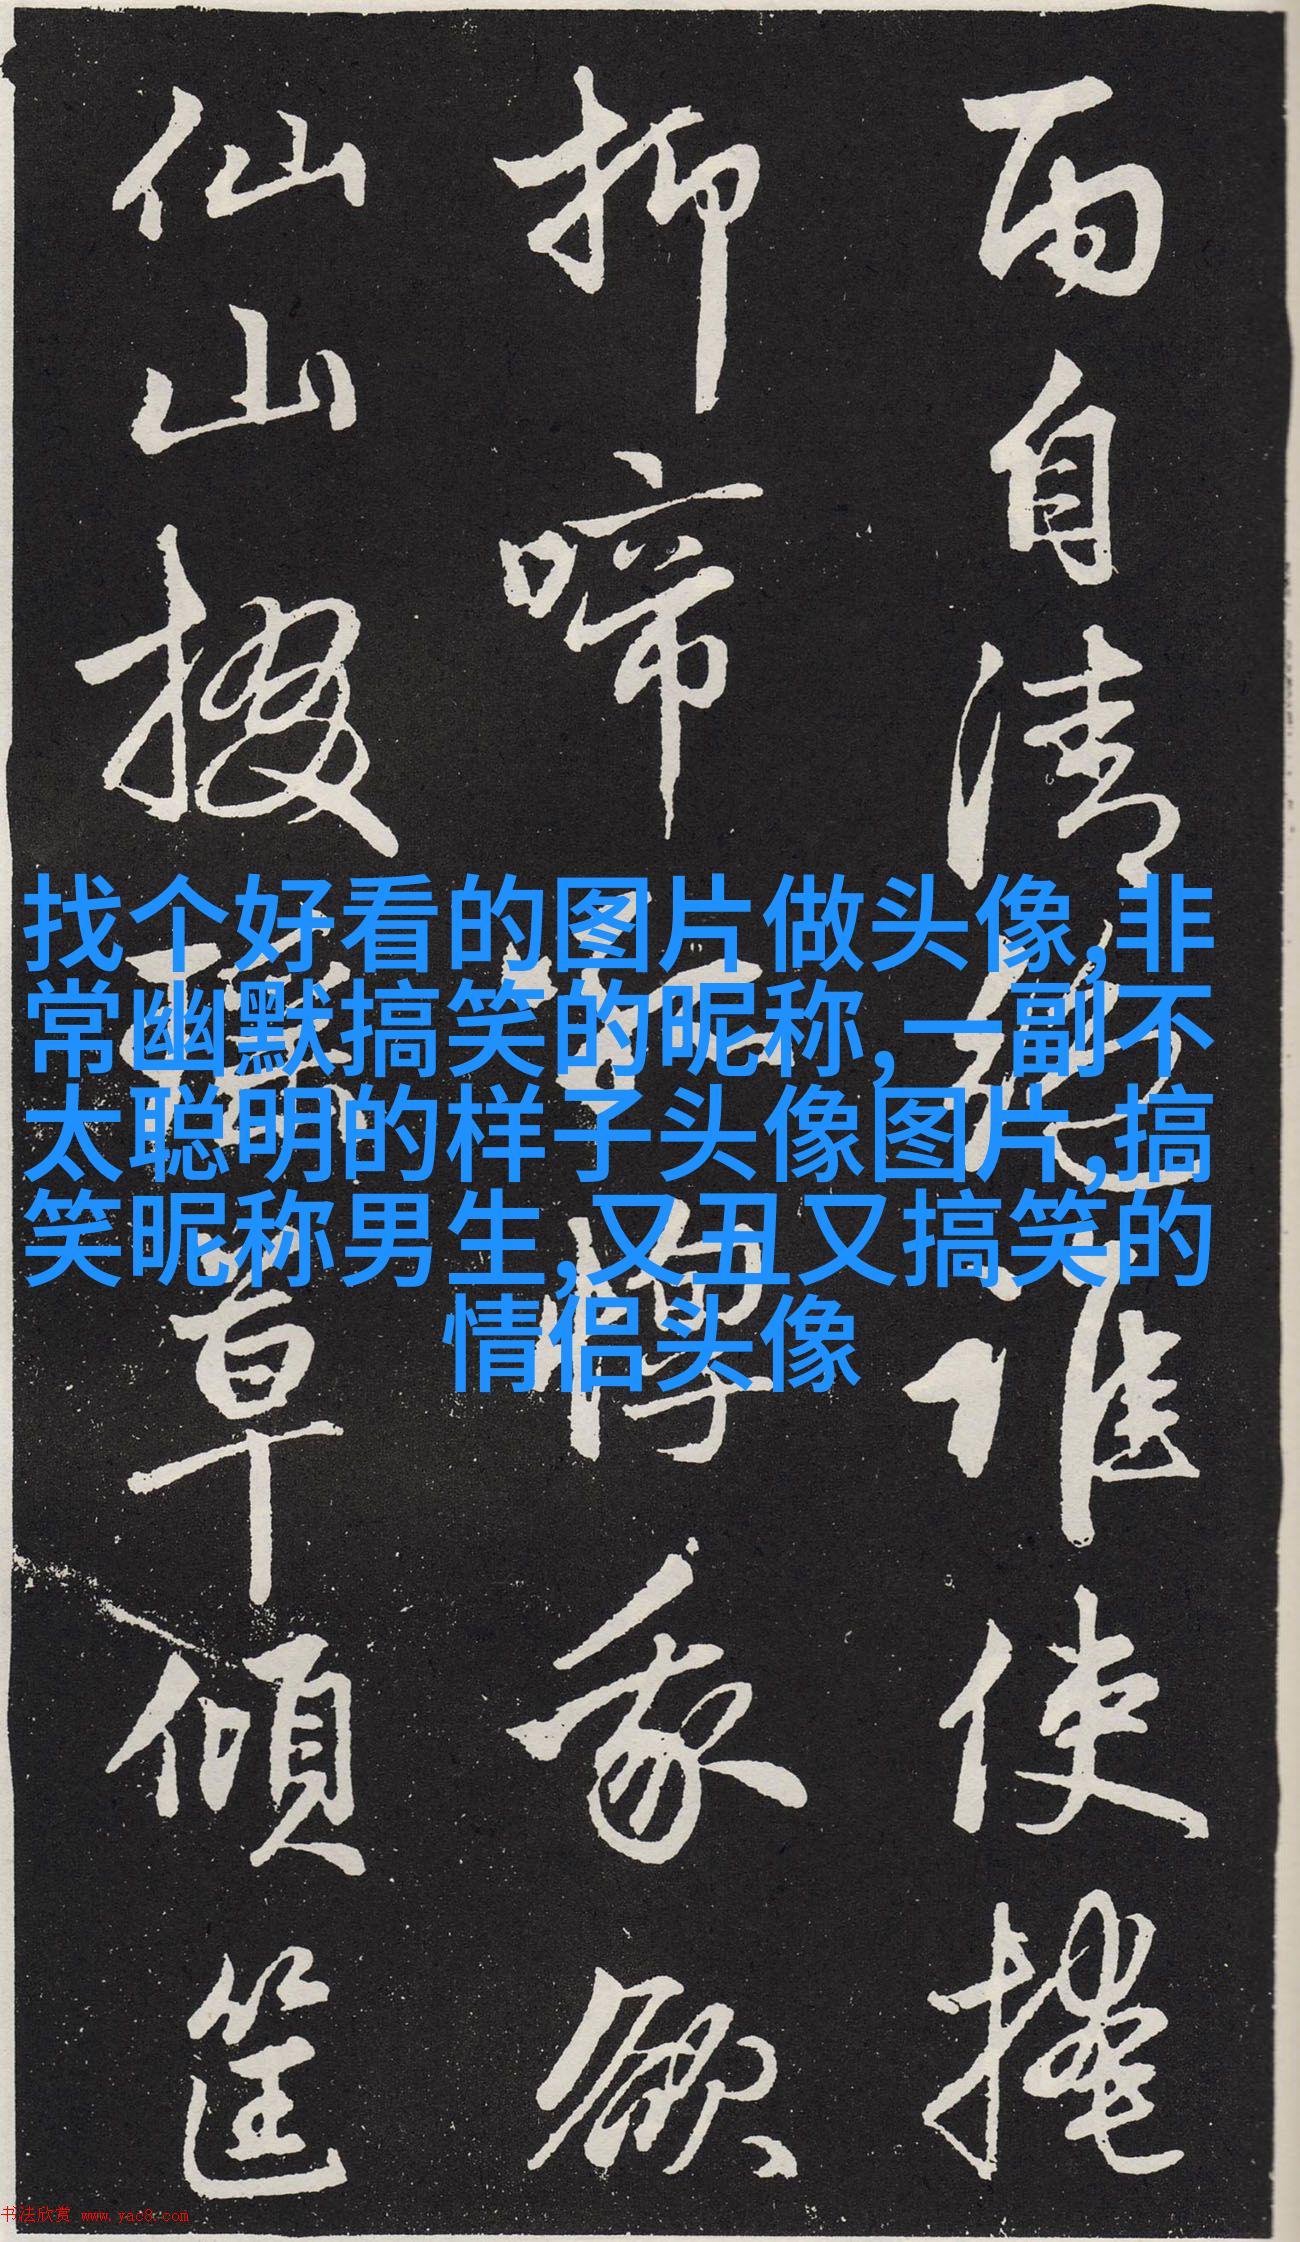 雨自清誰使掩
抑啼惸我欲
仙山掇瑤草傾筐
找个好看的图片做头像,非
常幽默搞笑的昵称,一副不
太聪明的样子头像图片,搞
笑昵称男生,又丑又搞笑的
情侣头像
书法欣赏 www.yac8.com